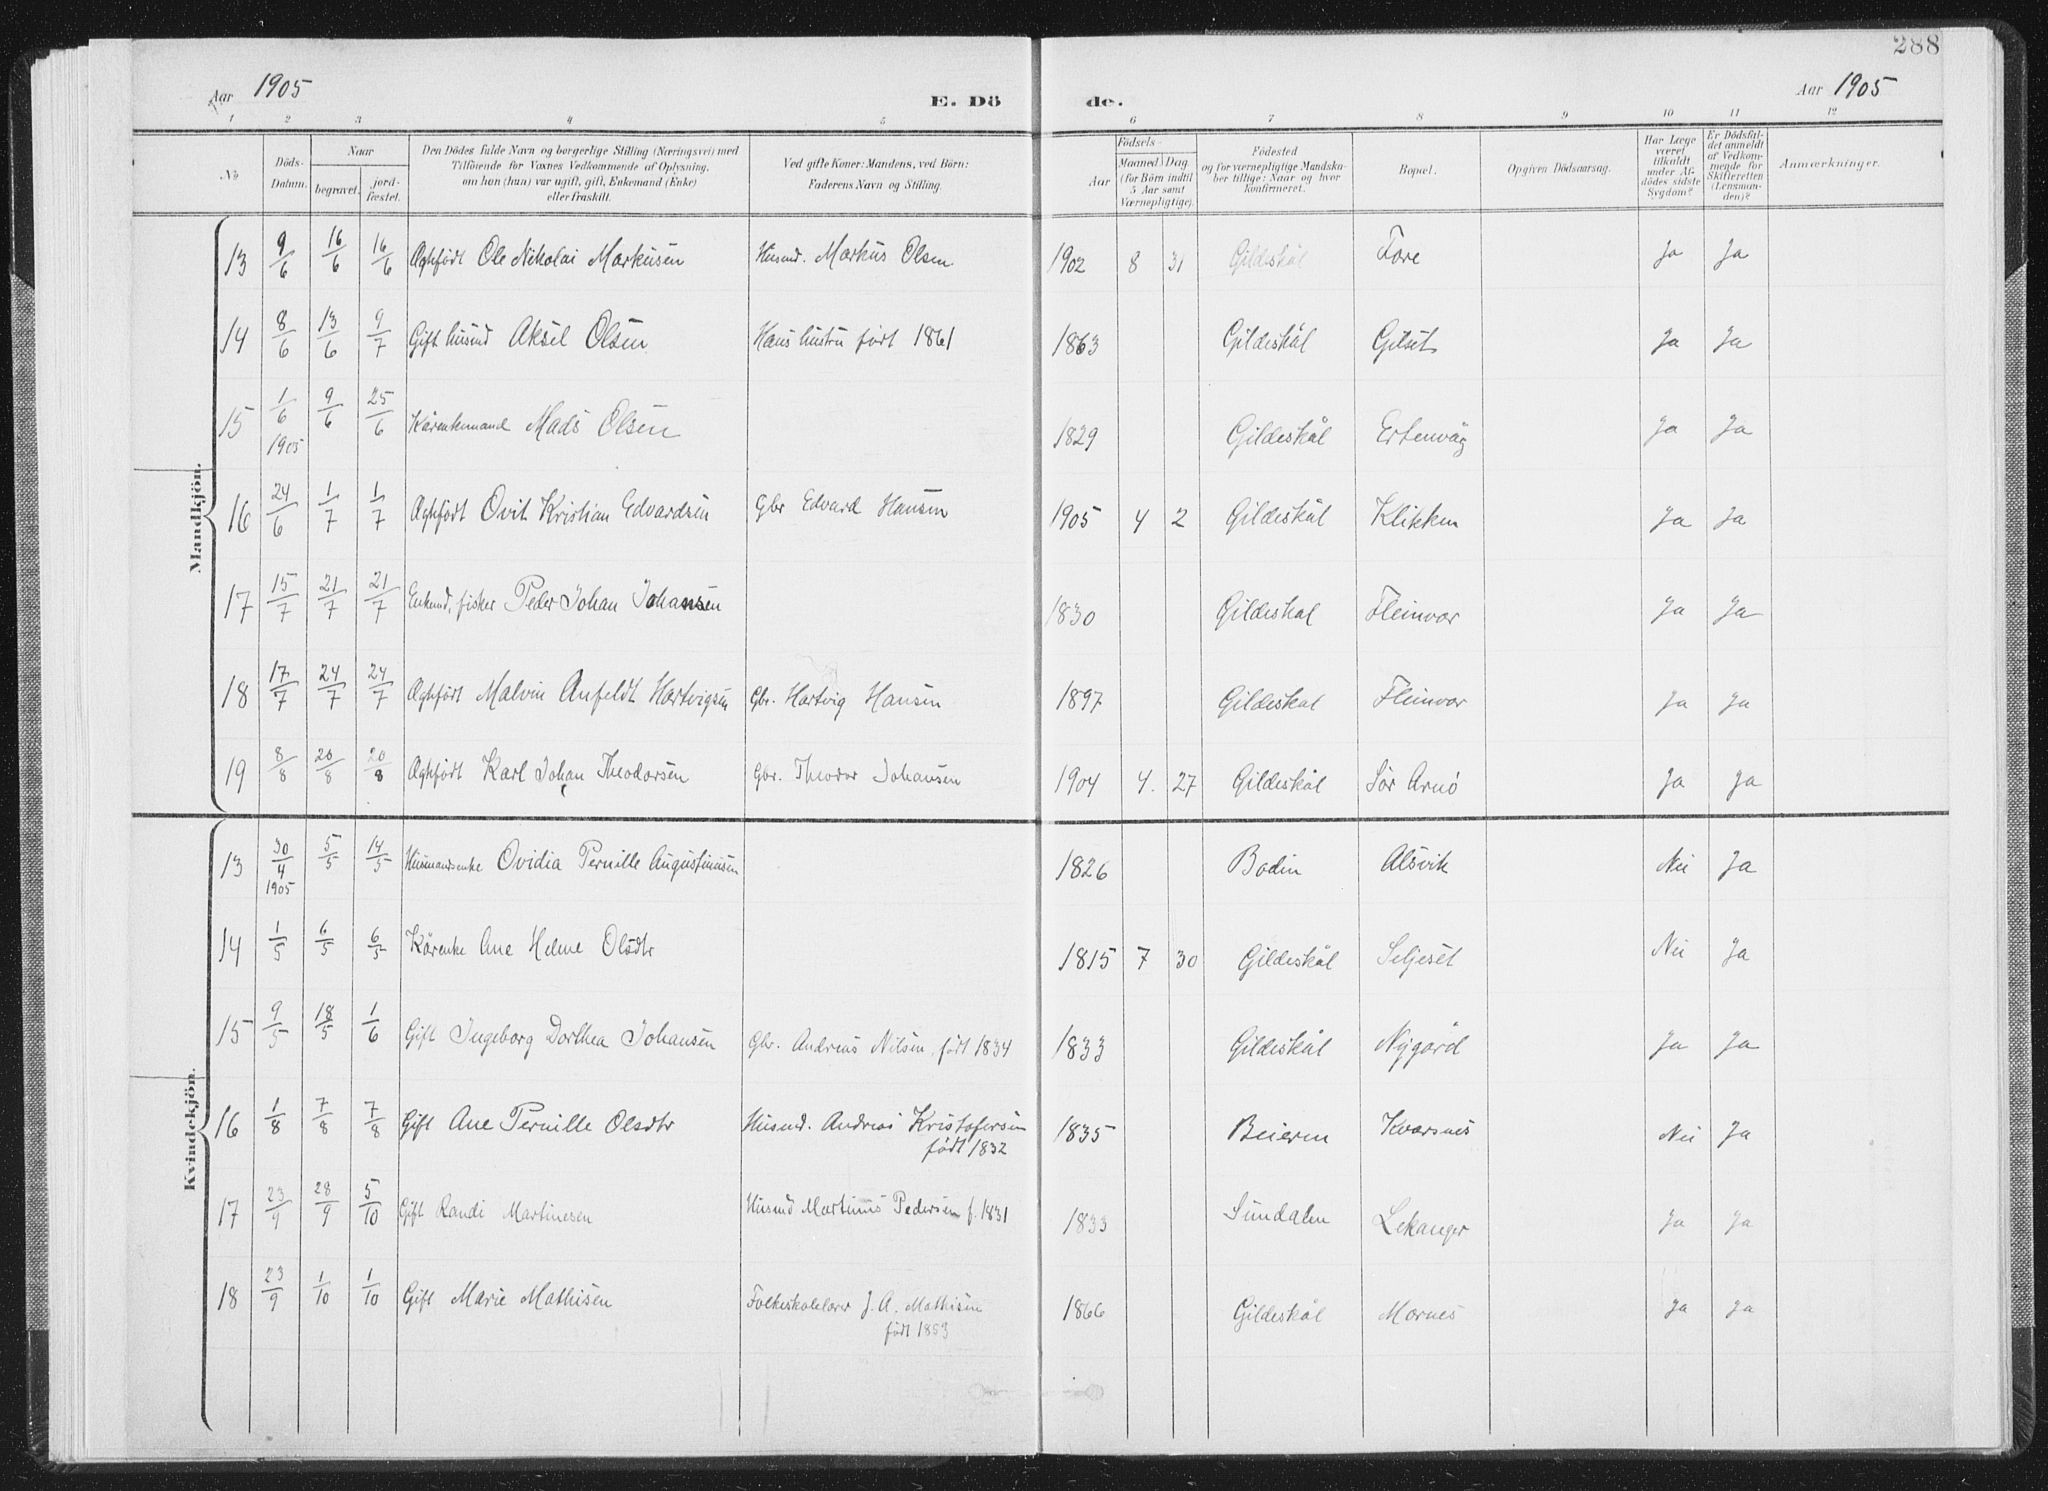 288
Aar 1905
E. Dö
de.
Aar 1905
1 2 3 4 5 6 7 8 9 10 11 12
No
Döds-
Datum.
Naar
begravet.
jord-
fæstet.
Den Dödes fulde Navn og borgerlige Stilling (Næringsvei) med
Tilföiende for Voxnes Vedkommende af Oplysning,
om han (hun) var ugift, gift, Enkemand (Enke)
eller fraskilt.
Ved gifte Koner: Mandens, ved Börn:
Faderens Navn og Stilling.
Födsels-
Aar
Maaned Dag
(for Börn indtil
5 Aar samt
Værnepligtige).
Födested
og for værnepligtige Mandska-
ber tillige: Naar og hvor
konfirmeret.
Bopæl.
Opgiven Dödsaarsag.
Har Læge
været
tilkaldt
under Af-
dödes sidste
Sygdom?
Er Dödsfal-
det anmeldt
af Vedkom-
mende for
Skifteretten
(Lensman-
den)?
Anmærkninger.
Mandkjön.
13 9/6 16/6 16/6 Ægtfödt Ole Nikolai Markusen Husmd. Markus Olsen 1902 8 31 Gildeskål Fore Ja Ja
14 8/6 13/6 9/7 Gift husmd Aksel Olsen Hans hustru født 1861 1863 Gildeskål Gilset Ja Ja
15 1/6 1905 9/6 25/6 Kårenkemand Mads Olsen 1829 Gildeskål Ertenvåg Ja Ja
16 24/6 1/7 1/7 Ægtfödt Ovit Kristian Edvardsen Gbr Edvard Hansen 1905 4 2 Gildeskål Klikken Ja Ja
17 15/7 21/7 21/7 Enkmd, fisker Peder Johan Johansen 1830 Gildeskal Fleinvær Ja Ja
18 17/7 24/7 24/7 Ægtfödt Malvin Anfeldt Hartvigsen Gbr. Hartvig Hansen 1897 Gildeskal Fleinvær Ja Ja
19 8/8 20/8 20/8 Ægtfödt Karl Johan Theodorsen Gbr. Theodor Johansen 1904 4. 27 Gildeskål Sör Arnö Ja Ja
Kvindekjön.
13 30/4 1905 5/5 14/5 Husmandsenke Ovidia Pernille Augustinusen 1826 Bodin Alsvik Nei Ja
14 1/5 6/5 6/5 Kårenke Ane Helene Olsdtr 1815 7 30 Gildeskål Seljeset Nei Ja
15 9/5 18/5 1/6 Gift Ingeborg Dorthea Johansen Gbr. Andreas Nilsen, født 1834 1833 Gildeskål Nygård Ja Ja
16 1/8 7/8 7/8 Gift Ane Pernille Olsdtr Husmd. Andreas Kristofersen 1835 Beieren Kvarsnes Nei Ja
født 1832
17 23/9 28/9 5/10 Gift Randi Martinesen Husmd Martinus Pedersen f. 1831 1833 Sundalen Lekanger Ja Ja
18 23/9 1/10 1/10 Gift Marie Mathisen Folkeskolelærer J. A. Mathisen 1866 Gildeskål Mornes Ja Ja
født 1853